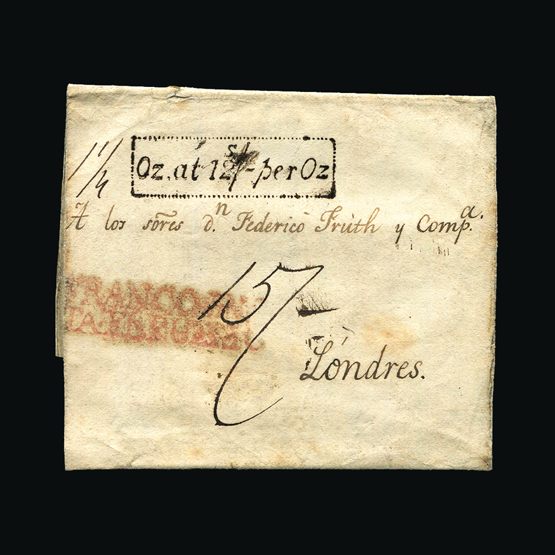 1 1/4
Oz, at 12/- per Oz
A los sõres d.n Federico Früth y Comp.a
FRANCO
15/-
Lóndres.